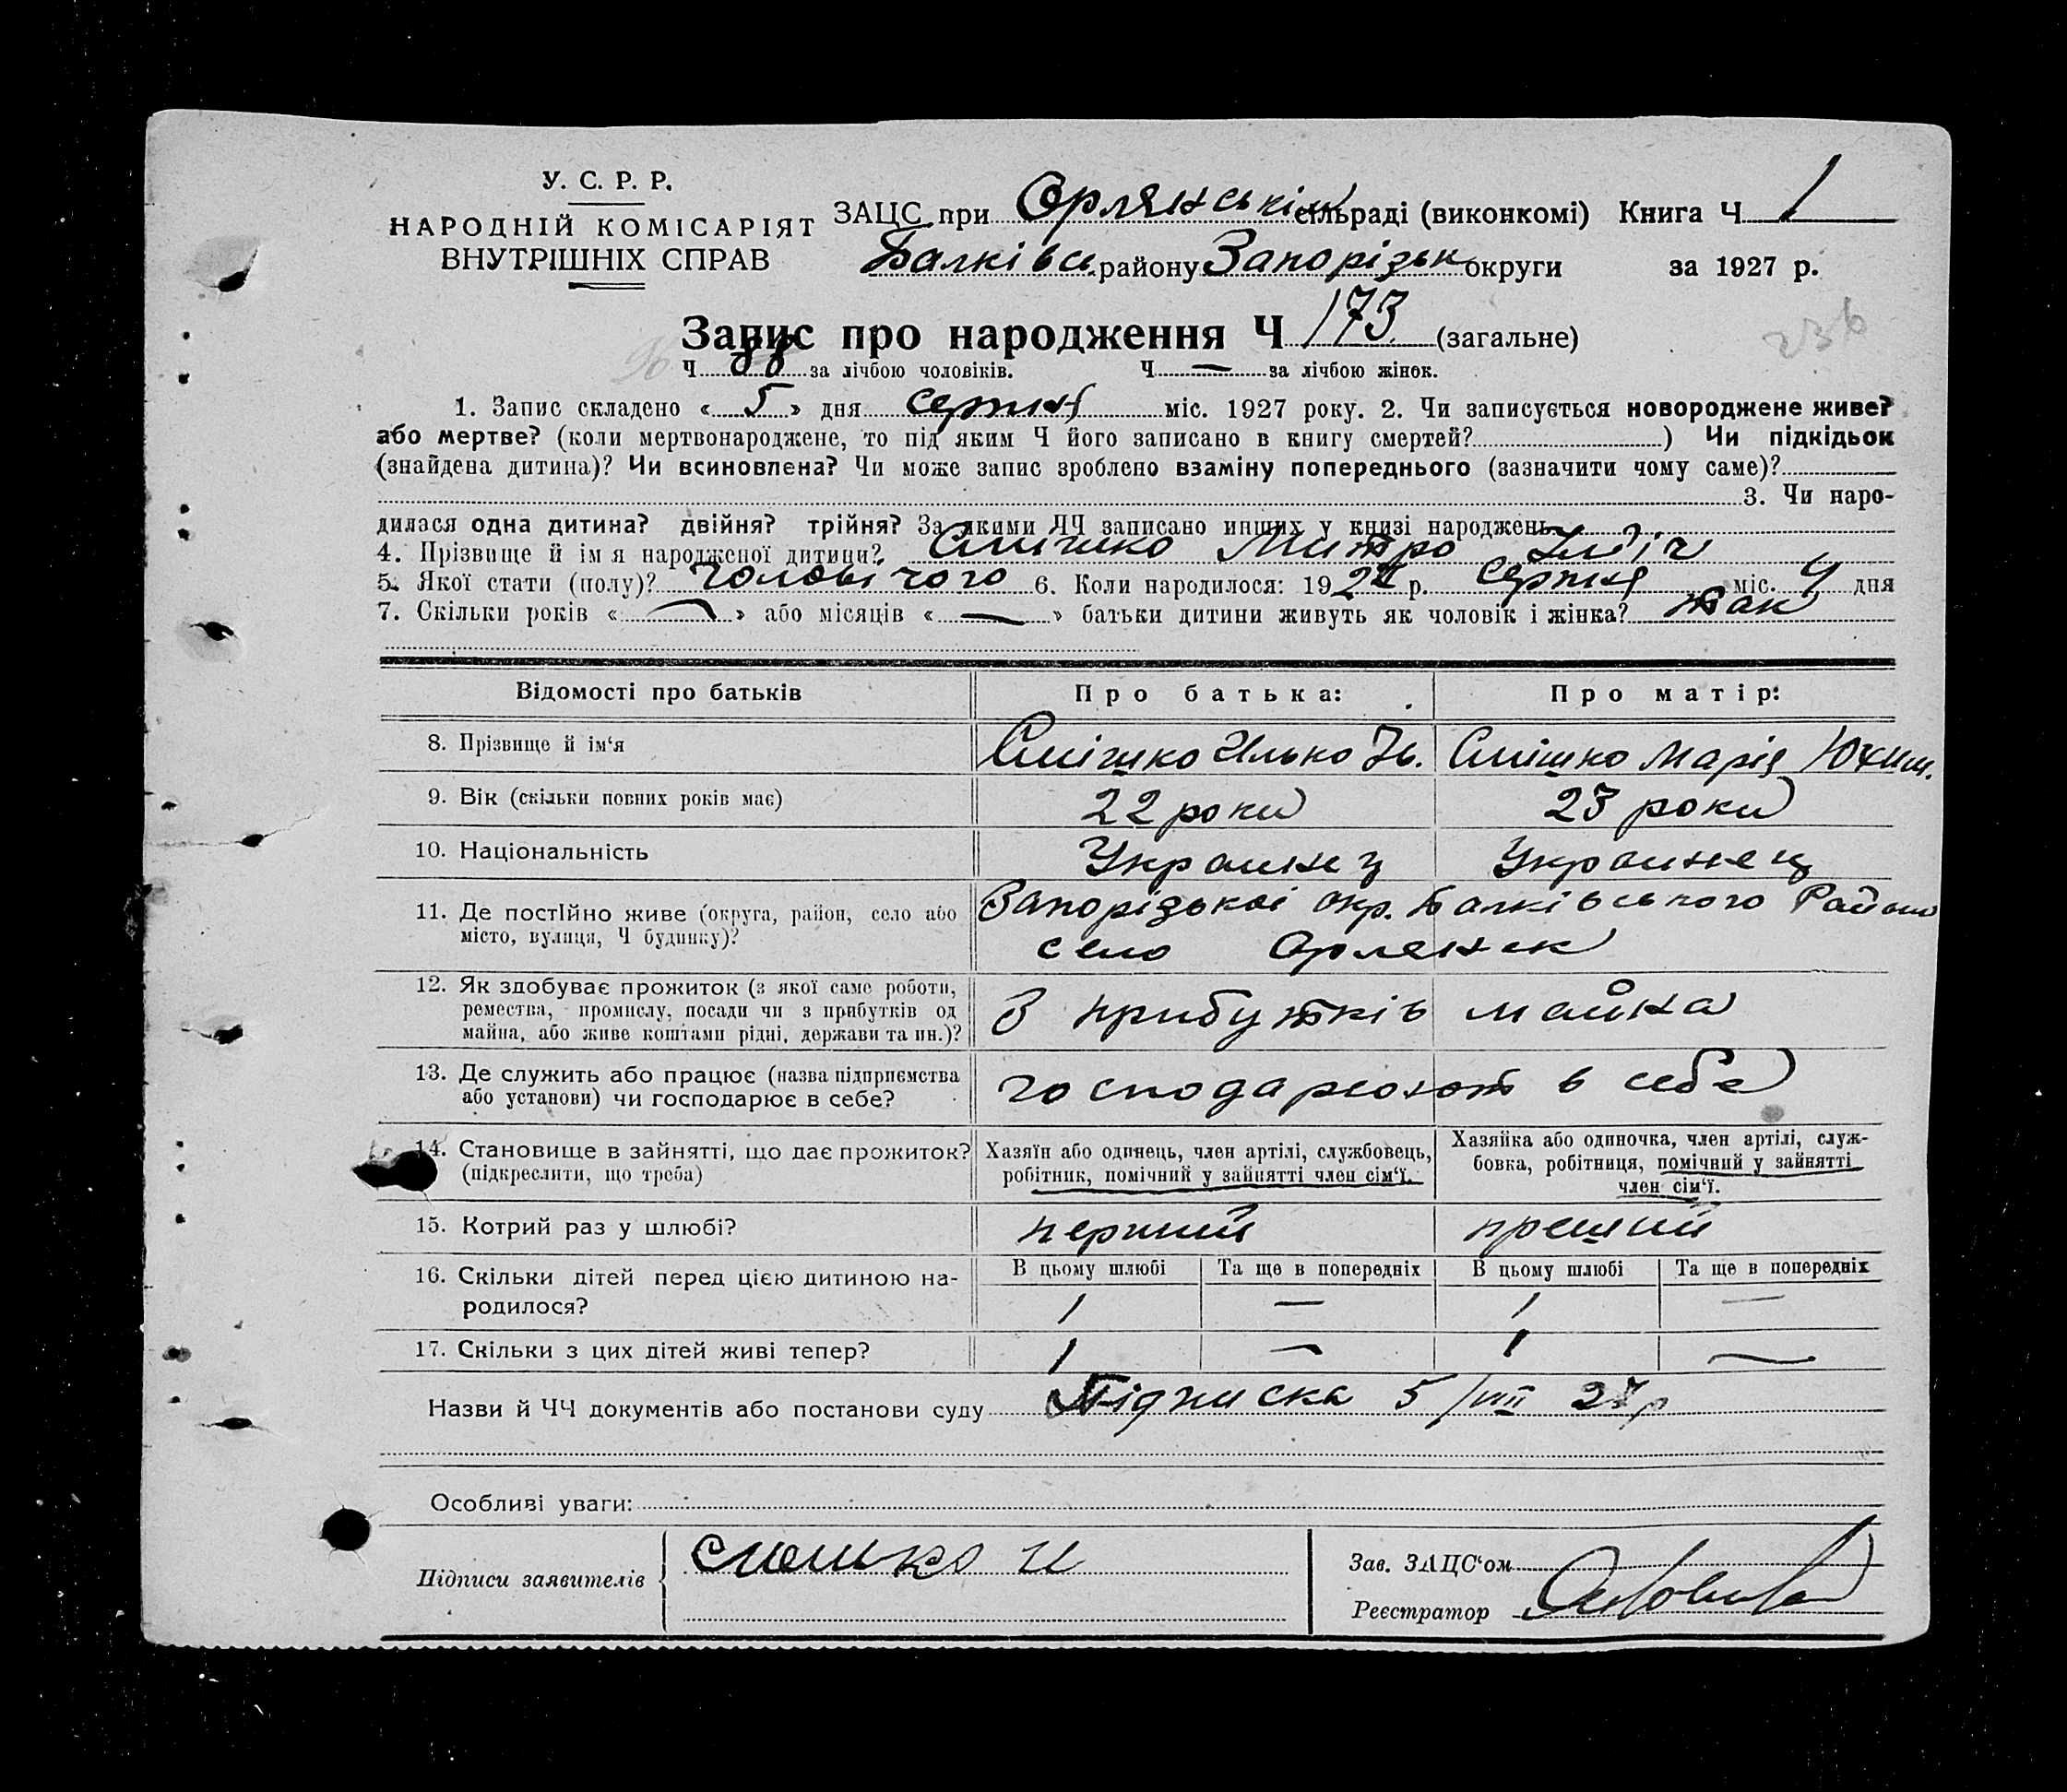 У. С. Р. Р.
НАРОДНІЙ КОМІСАРІЯТ
ВНУТРІШНІХ СПРАВ
ЗАЦС при Орлянській сільраді (виконкомі) Книга Ч 1
Балківськ району Запорізьк округи за 1927 р.
236
Запис про народження Ч 173 (загальне)
Ч 88 за лічбою чоловіків. Ч — за лічбою жінок.
1. Запис складено « 5 » дня серпня міс. 1927 року. 2. Чи записується новороджене живе?
або мертве? (коли мертвонароджене, то під яким Ч його записано в книгу смертей? ) Чи підкідьок
(знайдена дитина)? Чи всиновлена? Чи може запис зроблено взаміну попереднього (зазначити чому саме)?
3. Чи наро-
дилася одна дитина? двійня? трійня? За якими ЯЧ записано инших у книзі народжень
4. Прізвище й ім я народженої дитини? Смішко Митро Ілліч
5. Якої стати (полу)? чоловічого 6. Коли народилося: 1927 р. серпня міс. 4 дня
7. Скільки років « — » або місяців « — » батьки дитини живуть як чоловік і жінка? так
Відомості про батьків Про батька: Про матір:
8. Прізвище й ім‘я Смішко Илько Ів. Смішко Марія Юхим.
9. Вік (скільки повних років має) 22 роки 23 роки
10. Національність Украинц Украинец
11. Де постІйно живе (округа, район, село або Запорізькоі окр. Балківського Району
місто, вулиця, Ч будинку)? село Орлянск
12. Як здобуває прожиток (з якої саме роботи,
ремества, промислу, посади чи з прибутків од З прибутків майна
майна, або живе коштами рідні, держави та ин.)?
13. Де служить або працює (назва підприємства господарюют в себе
або установи) чи господарює в себе?
14. Становище в зайнятті, що дає прожиток? Хазяїн або одинець, член артілі, службовець, Хазяйка або одиночка, член артілі, служ-
(підкреслити, що треба) робітник, помічний у зайнятті член сім‘ї. бовка, робітниця, помічний у зайнятті
член сім‘ї.
15. Котрий раз у шлюбі? перший прешии
16. Скільки дітей перед цією дитиною на- В цьому шлюбі Та ще в попередніх В цьому шлюбі Та ще в попередніх
родилося? 1 — 1 —
17. Скільки з цих дітей живі тепер? 1 — 1 —
Назви й ЧЧ документів або постанови суду Підписка 5/VIII 27р
Особливі уваги:
Підписи заявителів смешко И
Зав. ЗАЦС‘ом
Реєстратор